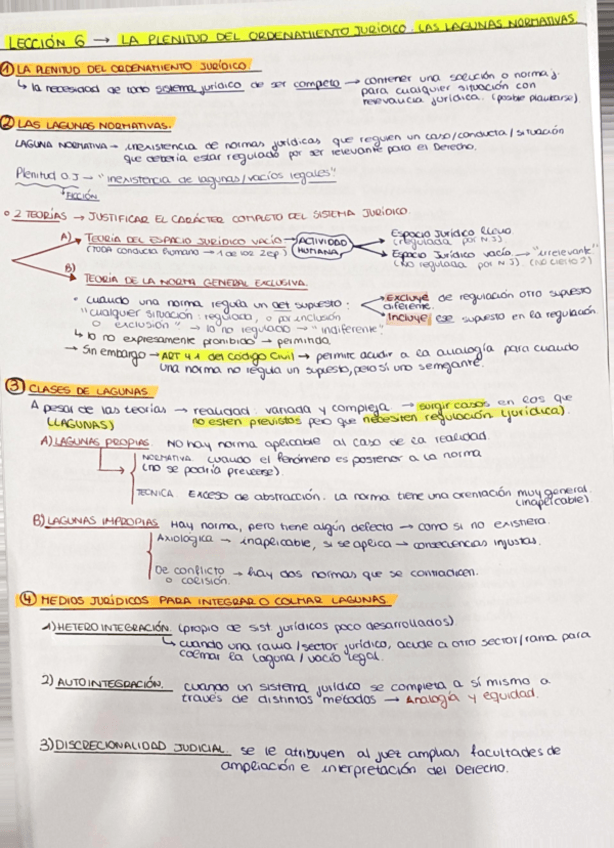 LECCIÓN 6 → LA PLENITUD DEL ORDENAMIENTO JURÍDICO: LAS LAGUNAS NORMATIVAS.
① LA PLENITUD DEL ORDENAMIENTO JURÍDICO
↳ la necesidad de todo sistema jurídico de ser completo → contener una solución o norma j.
para cualquier situación con
relevancia jurídica. (posible plantearse)
② LAS LAGUNAS NORMATIVAS.
LAGUNA NORMATIVA → inexistencia de normas jurídicas que regulen un caso/conducta/situación
que debería estar regulado por ser relevante para el Derecho.
Plenitud O.J → "inexistencia de lagunas/vacíos legales"
↳ FICCIÓN
2 TEORÍAS → JUSTIFICAR EL CARÁCTER COMPLETO DEL SISTEMA JURÍDICO
A) TEORÍA DEL ESPACIO JURÍDICO VACÍO → ACTIVIDAD HUMANA
(TODA conducta humana → 1 de los 2 ep)
Espacio Jurídico lleno
(regulada por N.J)
Espacio Jurídico vacío → "irrelevante"
(no regulada por N.J) (NO CIERTO?)
B) TEORÍA DE LA NORMA GENERAL EXCLUSIVA.
• cuando una norma regula un det supuesto:
Excluye de regulación otro supuesto
diferente.
Incluye ese supuesto en la regulación.
"cualquier situación: regulada, o por inclusión
o exclusión" → lo no regulado → "indiferente"
↳ lo no expresamente prohibido → permitido
→ Sin embargo → ART 4.1 del Código Civil → permite acudir a la analogía para cuando
una norma no regula un supuesto, pero sí uno semejante.
③ CLASES DE LAGUNAS.
A pesar de las teorías → realidad: variada y compleja → surgir casos en los que
(LAGUNAS) no estén previstos pero que necesiten regulación (jurídica).
A) LAGUNAS PROPIAS. NO hay norma aplicable al caso de la realidad.
NORMATIVA. cuando el fenómeno es posterior a la norma
(no se podría preveerse).
TÉCNICA. EXCESO de abstracción. La norma tiene una orientación muy general.
(inaplicable)
B) LAGUNAS IMPROPIAS. Hay norma, pero tiene algún defecto → como si no existiera.
Axiológica → inaplicable, si se aplica → consecuencias injustas.
De conflicto → hay dos normas que se contradicen.
o colisión.
④ MEDIOS JURÍDICOS PARA INTEGRAR O COLMAR LAGUNAS
1) HETEROINTEGRACIÓN. (propio de sist jurídicos poco desarrollados)
↳ cuando una rama/sector jurídico, acude a otro sector/rama para
colmar la laguna/vacío legal.
2) AUTOINTEGRACIÓN. cuando un sistema jurídico se completa a sí mismo a
través de distintos métodos → Analogía y equidad.
3) DISCRECIONALIDAD JUDICIAL. se le atribuyen al juez amplias facultades de
ampliación e interpretación del Derecho.